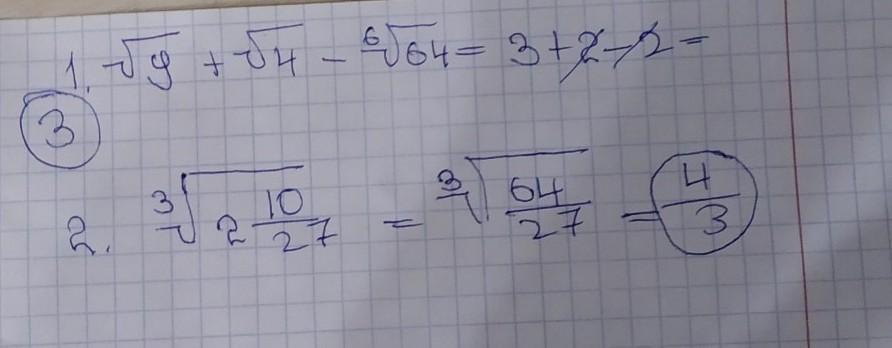 1. √9 + √4 - ⁶√64 = 3 + 2 - 2 =
3
2. ³√(2 10/27) = ³√(64/27) = 4/3